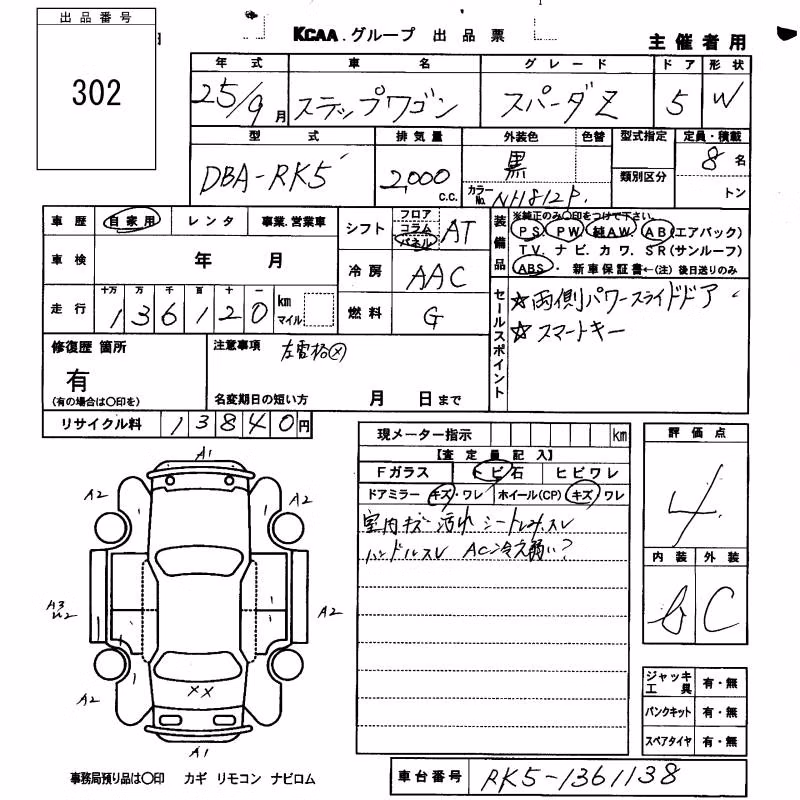 出品番号
302
KCAA.グループ 出品票
主催者用
年式 車名 グレード ドア 形状
25/9月 ステップワゴン スパーダZ 5 W
型式 排気量 外装色 色替 型式指定 定員・積載
DBA-RK5 2,000 c.c. 黒 8名
カラーNo. NH812P. 類別区分 トン
車歴 自家用 レンタ 事業.営業車
シフト フロア コラム パネル AT
装備品 ※純正のみ○印をつけて下さい。
PS PW 純AW AB(エアバック)
TV. ナビ. カワ. SR(サンルーフ)
ABS・ 新車保証書←(注) 後日送りのみ
車検 年 月
冷房 AAC
走行 十万 万 千 百 十 一
136120 km マイル
燃料 G
セールスポイント
☆両側パワースライドドア
☆スマートキー
修復歴 箇所
有
(有の場合は○印を)
注意事項
名変期日の短い方 月 日まで
リサイクル料 13840円
現メーター指示 km
【査定員記入】
Fガラス トビ石 ヒビワレ
ドアミラー キズ・ワレ ホイール(CP) キズ ワレ
室内キズ 汚れ シートしみ スレ
ハンドルスレ AC冷え弱い?
評価点
4
内装 外装
b C
ジャッキ工具 有・無
パンクキット 有・無
スペアタイヤ 有・無
A1
A2 A2
A3 A2
××
A2 A2
A1
事務局預り品は○印 カギ リモコン ナビロム
車台番号 RK5-1361138